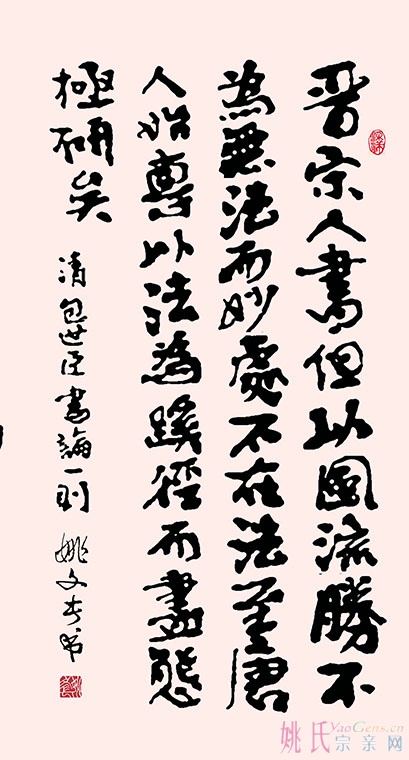 晋宋人書但以風流勝不
為無法而妙處不在法至唐
人始專以法為蹊徑而盡態
極研矣
清包世臣書論一則 姚文书
姚氏
YaoGens.cn
宗亲网